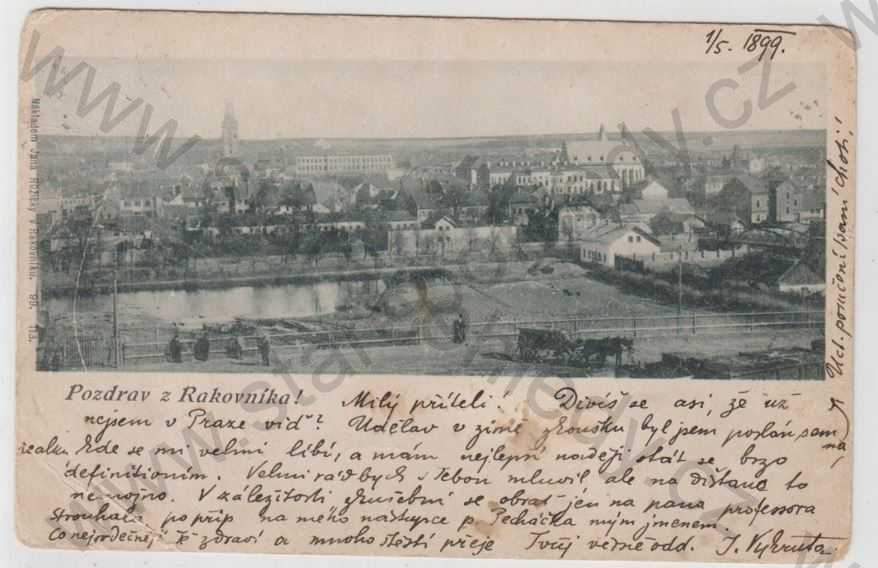 1/5. 1899.
Nákladem Jana Růžičky v Rakovníku. 99. 113.
Pozdrav z Rakovníka!
Milý příteli! Divíš se asi, že už
nejsem v Praze viď? Udělav v zimě zkoušku byl jsem poslán sem na
realku kde se mi velmi líbí, a mám nejlepší naději stát se brzo
definitivním. Velmi rád bych s Tebou mluvil ale na dištanc to
nemožno. V záležitosti zkušební se obrať jen na pana professora
Strouhala po příp na mého nástupce p. Pecháčka mým jménem.
Co nejsrdečněji Tě zdraví a mnoho štěstí přeje Tvůj věrně odd. J. Vykruta.
Uct. poručení paní choti!
www.stare-pohledy.cz